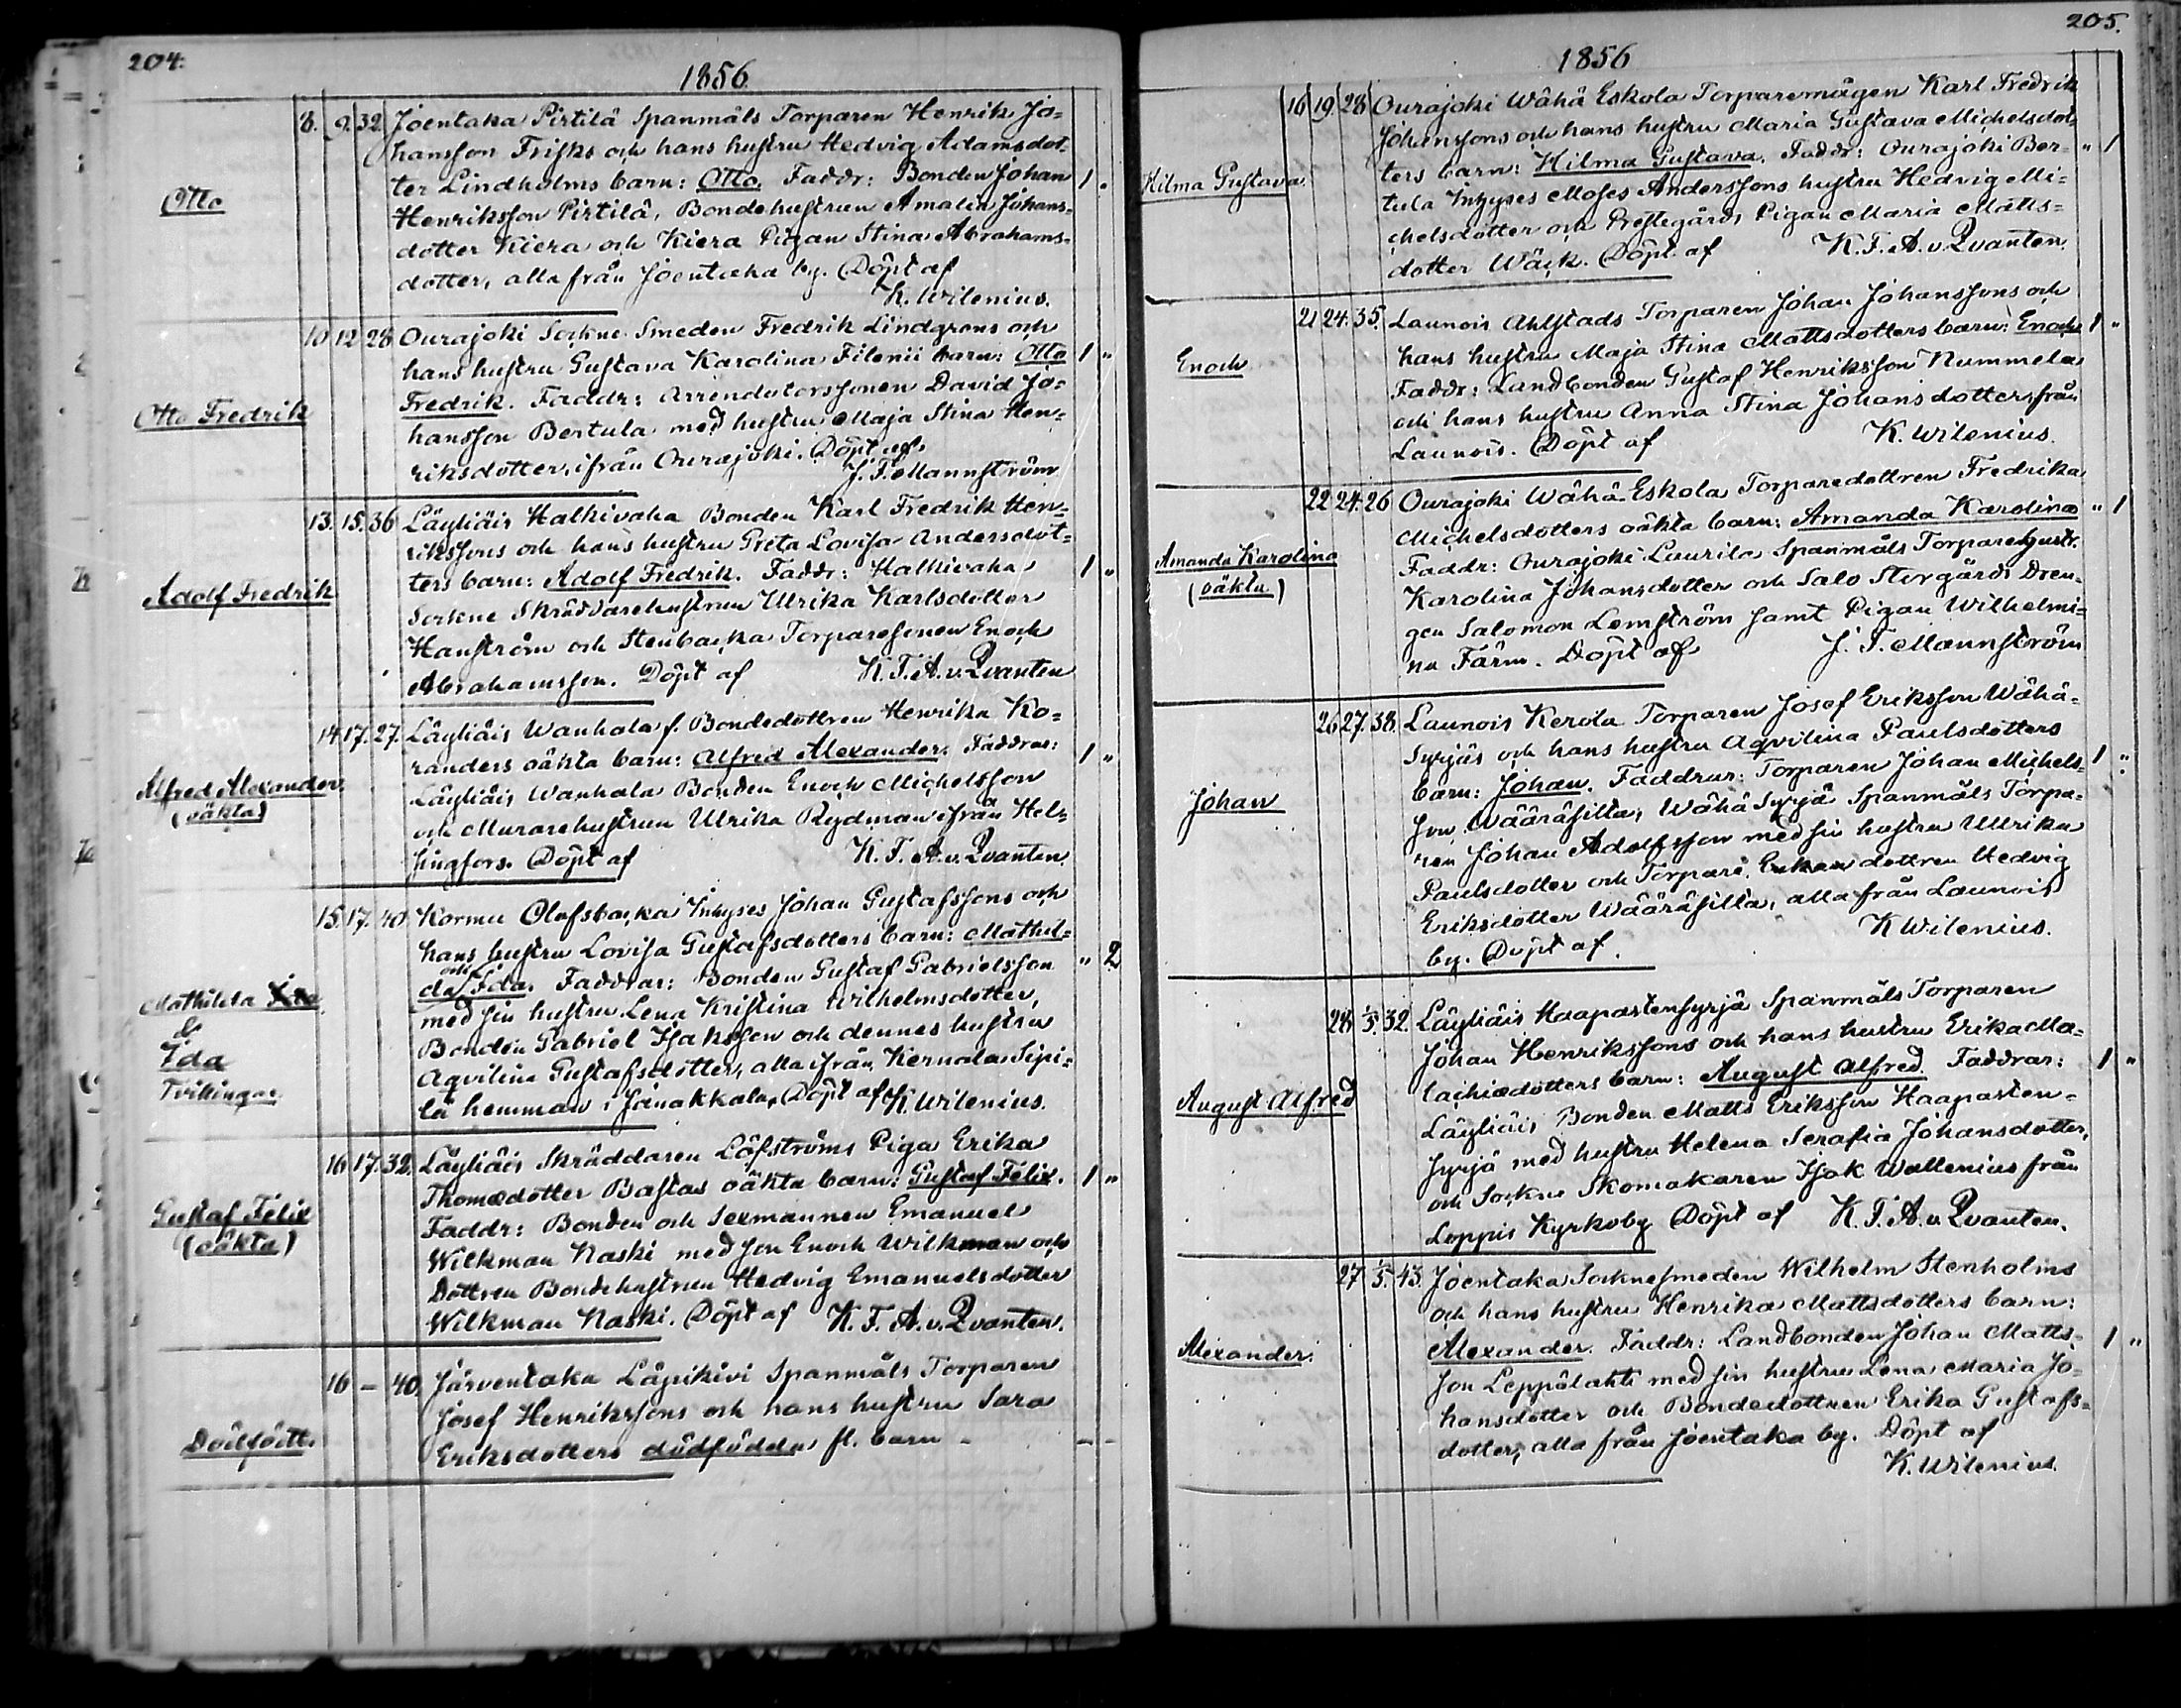 204.
1856.
Otto
8. 9. 32. Joentaka Pirtilä Spanmåls Torparen Henrik Jo=
hansson Frisks och hans hustru Hedvig Adamsdot=
ter Lindholms barn: Otto. Faddr: Bonden Johan 1 "
Henriksson Pirtilä, Bondehustrun Amalia Johans=
dotter Kiera och Kiera Pigan Stina Abrahams=
dotter, alla från Joentaka by. Döpt af
K. Wilenius.
Otto Fredrik
10 12 28 Ourajoki Sockne Smeden Fredrik Lindgrens och
hans hustru Gustava Karolina Filenii barn: Otto 1 "
Fredrik. Faddr: Arrendatorssonen David Jo=
hansson Bertula med hustru Maja Stina Hen=
riksdotter, ifrån Ourajoki. Döpt af
J. F. Mannström
Adolf Fredrik
13. 15. 36 Läyliäis Halkivaha Bonden Karl Fredrik Hen=
rikssons och hans hustru Greta Lovisa Andersdot=
ters barn: Adolf Fredrik. Faddr: Halkivaha 1 "
Sockne Skräddarehustrun Ulrika Karlsdotter
Hanström och Stenbacka Torparesonen Enoch
Abrahamsson. Döpt af K. F. A. v. Qvanten
Alfred Alexander
(oäkta)
14 17. 27. Läyliäis Wanhala f. Bondedottren Henrika Ko=
randers oäkta barn: Alfred Alexander. Faddrar: 1 "
Läyliäis Wanhala Bonden Enoch Michelsson
och Murarehustrun Ulrika Rydman ifrån Hel=
singfors. Döpt af K. F. A. v. Qvanten
Mathilda Ida
&
Ida
Tvillingar
15. 17. 40. Kormu Olofsbacka Inhyses Johan Gustafssons och
hans hustru Lovisa Gustafsdotters barn: Mathil=
da och Ida. Faddrar: Bonden Gustaf Gabrielsson " 2
med sin hustru Lena Kristina Wilhelmsdotter,
Bonden Gabriel Isaksson och dennes hustru
Aqvilina Gustafsdotter, alla ifrån Kernala Sipi=
lä hemman i Janakkala. Döpt af K. Wilenius.
Gustaf Felix
(oäkta)
16 17. 32. Läyliäis Skräddaren Löfströms Piga Erika
Thomædotter Bastas oäkta barn: Gustaf Felix. 1 "
Faddr: Bonden och Sexmannen Emanuel
Wilkman Naski med son Enoch Wilkman och
Dottren Bondehustrun Hedvig Emanuelsdotter
Wilkman Naski. Döpt af K. F. A. v. Qvanten.
Dödfödt.
16 — 40. Järventaka Läpikivi Spanmåls Torparen
Josef Henrikssons och hans hustru Sara
Eriksdotters dödfödda fl. barn — — —
205.
1856
Hilma Gustava
16 19. 28 Ourajoki Wähä Eskola Torparemågen Karl Fredrik
Johanssons och hans hustru Maria Gustava Michelsdot=
ters barn: Hilma Gustava. Faddr: Ourajoki Ber= " 1
tula Inhyses Moses Anderssons hustru Hedvig Mi=
chelsdotter och Prestegårds Pigan Maria Matts=
dotter Wäck. Döpt af K. F. A. v. Qvanten.
Enoch
21 24. 35. Launois Ahlstads Torparen Johan Johanssons och
hans hustru Maja Stina Mattsdotters barn: Enoch 1 "
Faddr: Landbonden Gustaf Henriksson Nummela
och hans hustru Anna Stina Johansdotter från
Launois. Döpt af K. Wilenius.
Amanda Karolina
(oäkta)
22 24. 26 Ourajoki Wähä-Eskola Torparedottren Fredrika
Michelsdotters oäkta barn: Amanda Karolina " 1
Faddr: Ourajoki Laurila Spanmåls Torparehustr.
Karolina Johansdotter och Salo Storgårds Dren=
gen Salomon Lemström samt Pigan Wilhelmi=
na Färm. Döpt af J. F. Mannström
Johan
26 27. 38. Launois Kerola Torparen Josef Eriksson Wähä=
Syrjäs och hans hustru Aqvilina Paulsdotters
barn: Johan. Faddrar: Torparen Johan Michels= 1 "
son Wääräsilta, Wähä Syrjä Spanmåls Torpa=
ren Johan Adolfsson med sin hustru Ulrika
Paulsdotter och Torpare Enkan dottren Hedvig
Eriksdotter Wääräsilta, alla från Launois
by. Döpt af. K Wilenius.
August Alfred
28 1/5. 32. Läyliäis Haapastensyrjä Spanmåls Torparen
Johan Henrikssons och hans hustru Erika Ma=
lachiædotters barn: August Alfred. Faddrar: 1 "
Läyliäis Bonden Matts Eriksson Haapasten=
syrjä med hustru Helena Serafia Johansdotter,
och Sockne Skomakaren Isak Wallenius från
Loppis Kyrkoby Döpt af K. F. A. v. Qvanten.
Alexander.
27 1/5. 43. Joentaka Socknesmeden Wilhelm Stenholms
och hans hustru Henrika Mattsdotters barn:
Alexander. Faddr: Landbonden Johan Matts= 1 "
son Leppälahti med sin hustru Lena Maria Jo=
hansdotter och Bondedottren Erika Gustafs=
dotter, alla från Joentaka by. Döpt af
K. Wilenius.